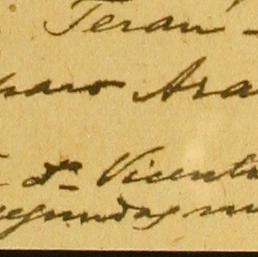 Teran -
paro Ara
Dn Vicente
segundas